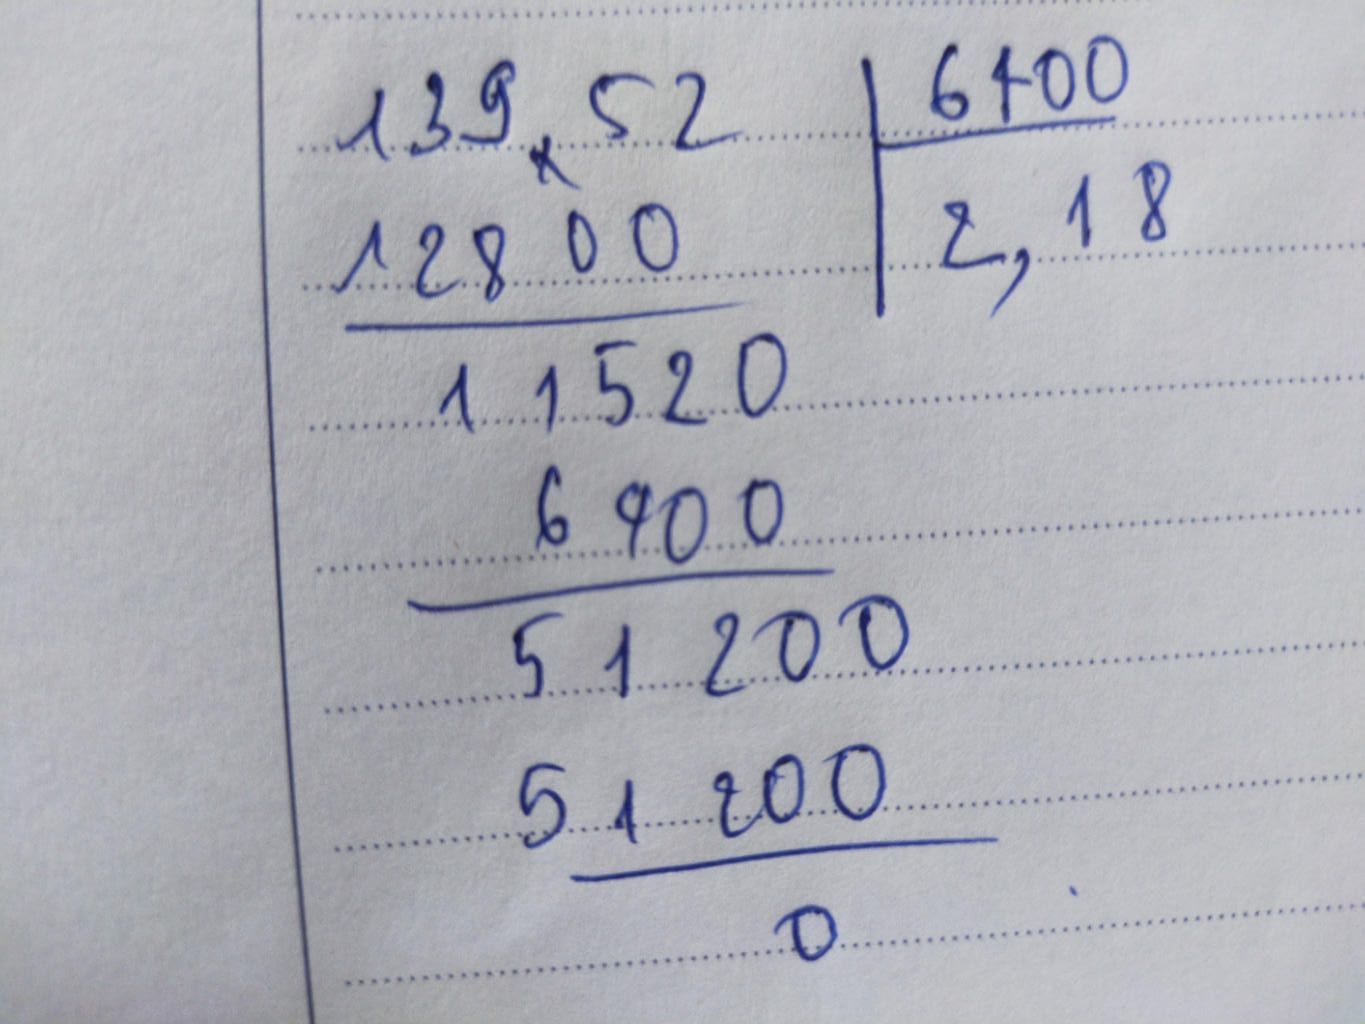 139.52 6400
12800 2,18
11520
6400
51200
51200
0